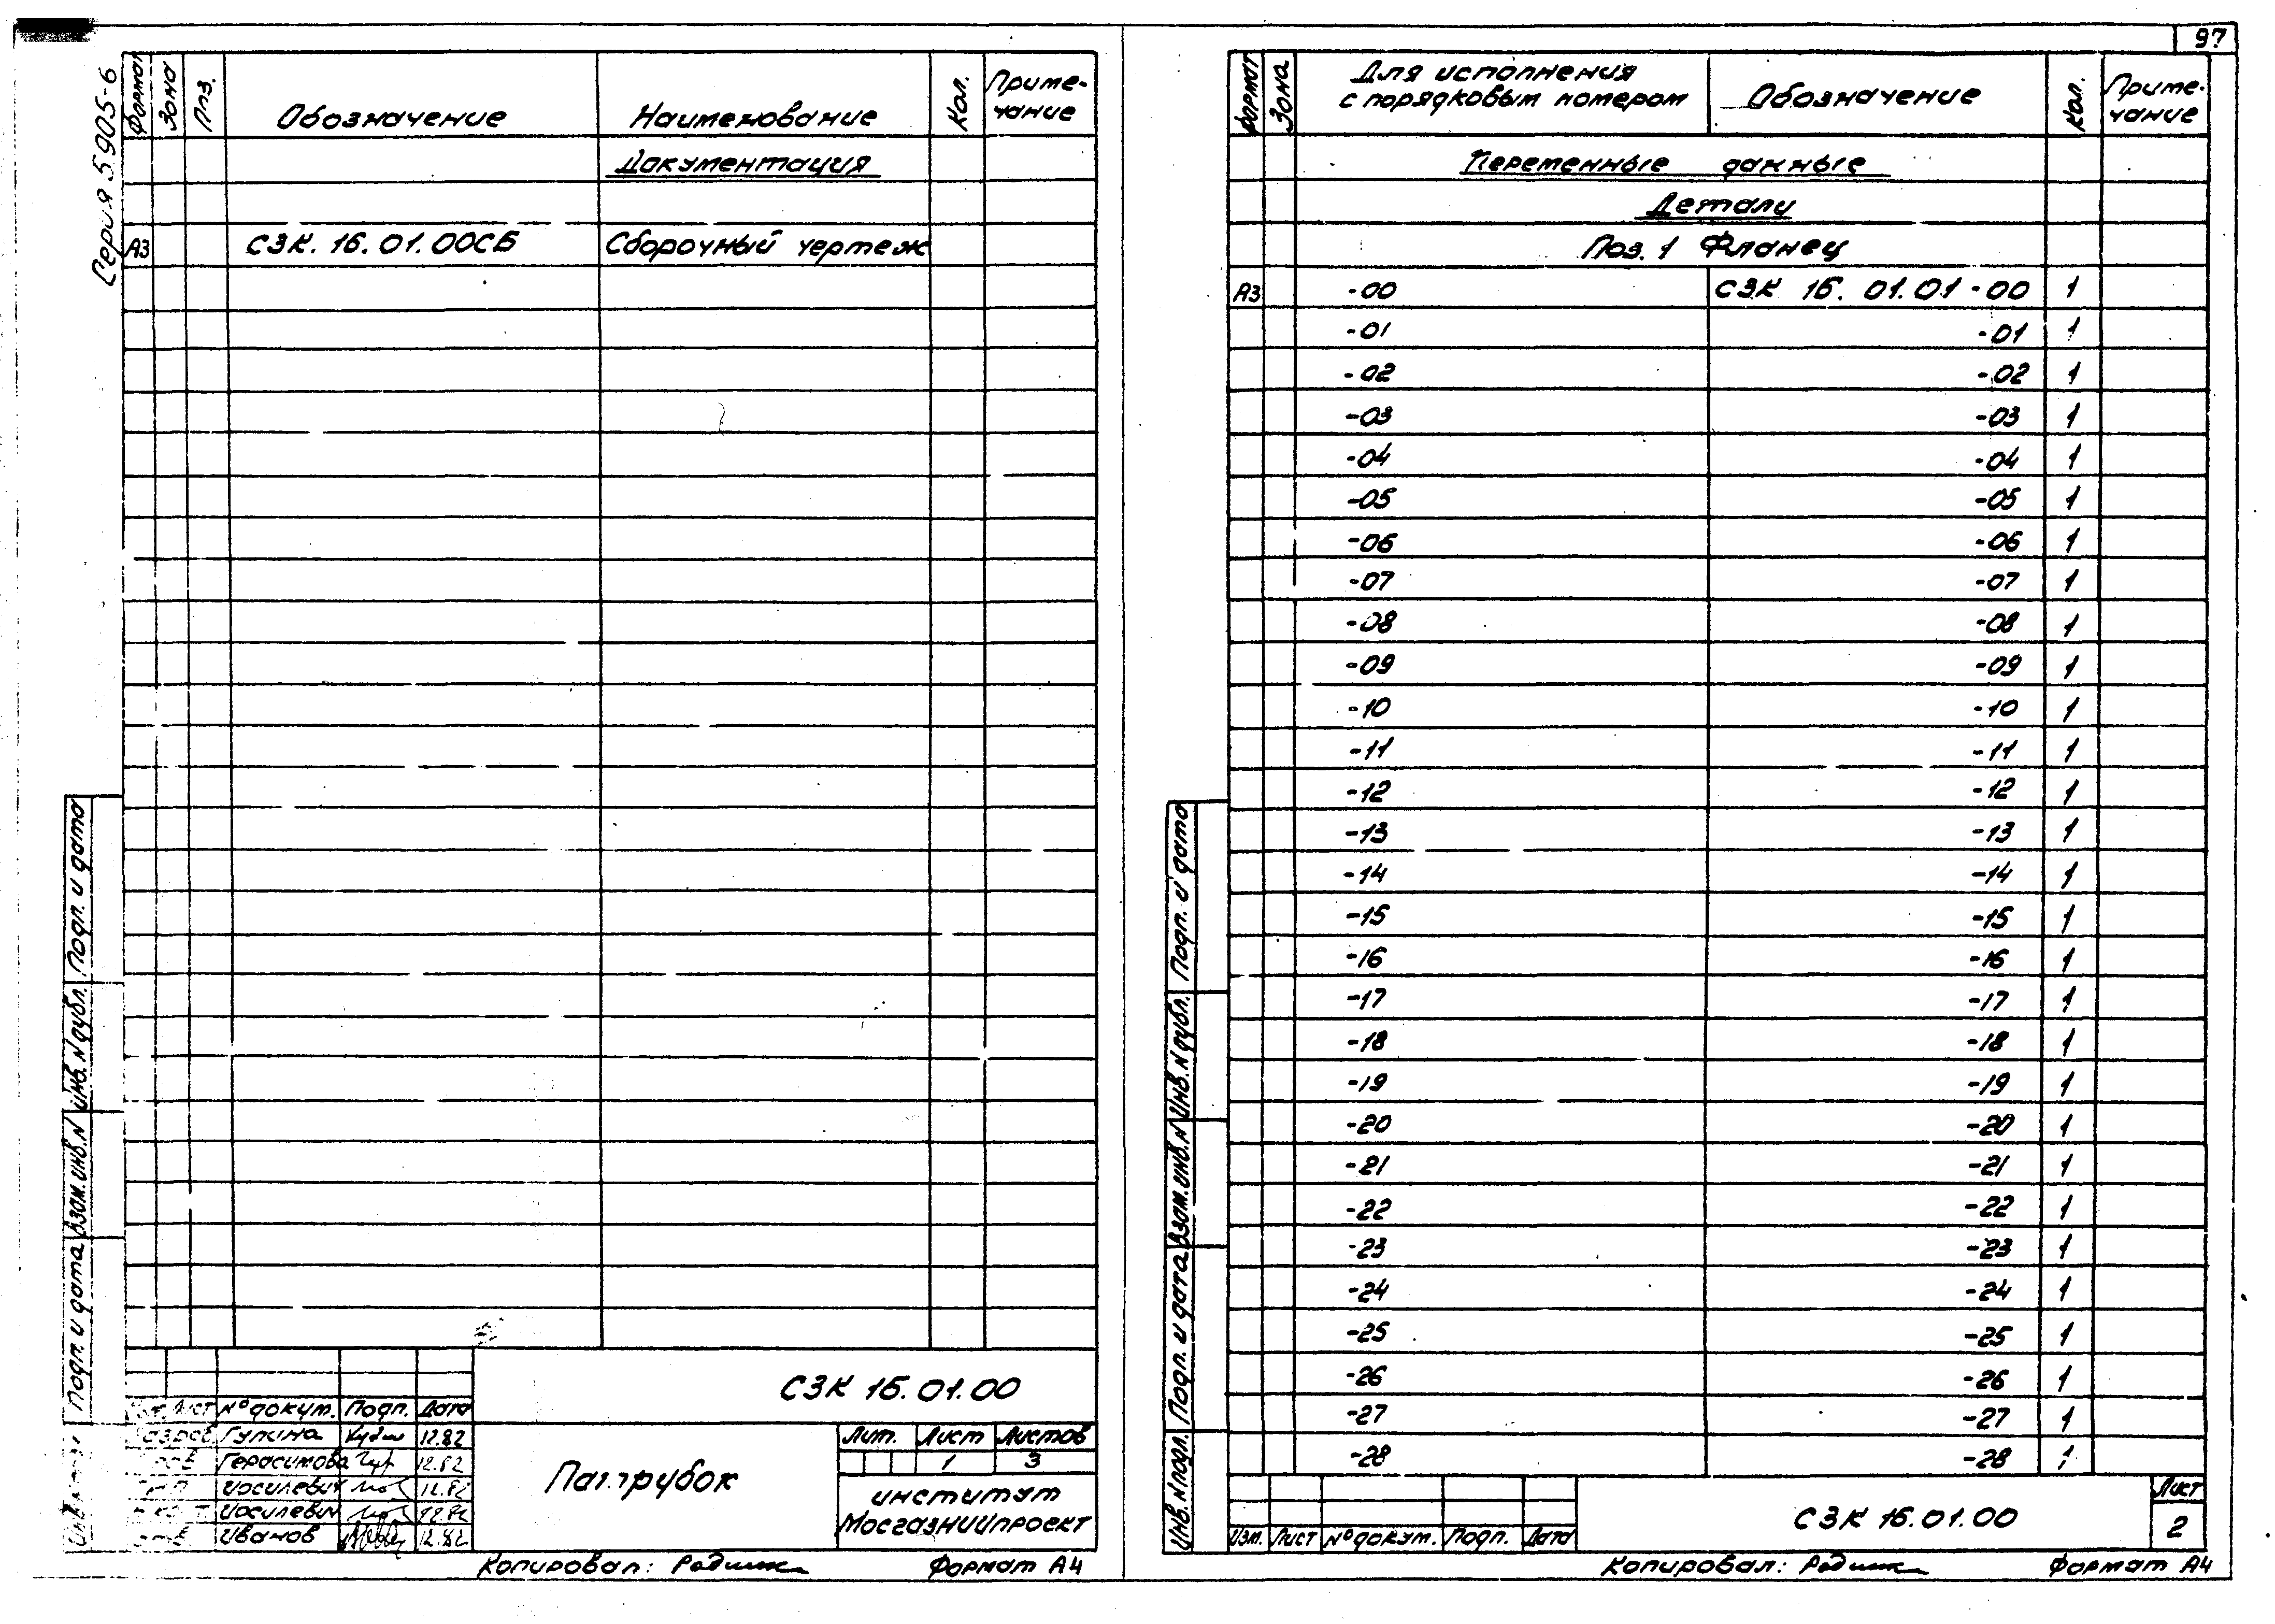 97
Серия 5.905-6
Формат Зона Поз. Обозначение Наименование Кол. Примечание
Документация
А3 СЗК. 16. 01. 00СБ Сборочный чертеж
Подп. и дата
Инв. N дубл.
Взам. инв. N
Подп. и дата
СЗК 16.01.00
Лист N° докум. Подп. Дата
Гулина 12.82
Герасимова 12.82
Иосилевич 12.82
Иосилевич 12.82
Иванов 12.82
Патрубок
Лит. Лист Листов
1 3
институт
Мосгазниипроект
Копировал: Формат А4
Формат Зона Для исполнения с порядковым номером Обозначение Кол. Примечание
Переменные данные
Детали
Поз. 1 Фланец
А3 -00 СЗК 16. 01.01 -00 1
-01 -01 1
-02 -02 1
-03 -03 1
-04 -04 1
-05 -05 1
-06 -06 1
-07 -07 1
-08 -08 1
-09 -09 1
-10 -10 1
-11 -11 1
-12 -12 1
-13 -13 1
-14 -14 1
-15 -15 1
-16 -16 1
-17 -17 1
-18 -18 1
-19 -19 1
-20 -20 1
-21 -21 1
-22 -22 1
-23 -23 1
-24 -24 1
-25 -25 1
-26 -26 1
-27 -27 1
-28 -28 1
Подп. и дата
Инв. N дубл.
Взам. инв. N
Подп. и дата
Инв. N подл.
Изм. Лист N° докум. Подп. Дата
СЗК 16.01.00
Лист
2
Копировал: Формат А4